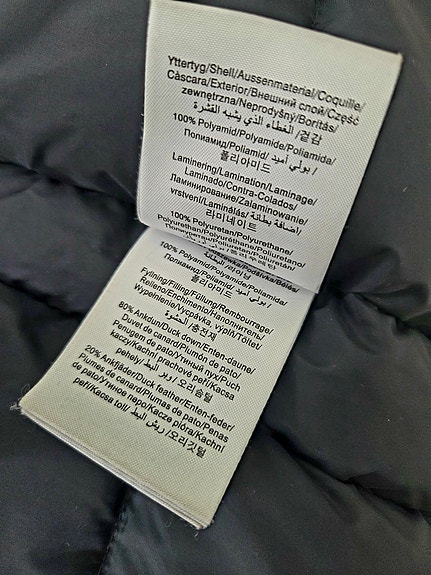 Yttertyg/Shell/Aussenmaterial/Coquille/
Càscara/Exterior/Внешний слой/Część
zewnętrzna/Neprodyšný/Borítás/
الغطاء الذي يشبه القشرة / 겉감
100% Polyamid/Polyamide/Poliamida/
Полиамид/Poliamid/ بولي أميد /
폴리아미드
Laminering/Lamination/Laminage/
Laminado/Contra-Colados/
Ламинирование/Zalaminowanie/
vrstvení/Laminálás/ إضافة بطانة /
라미네이트
100% Polyuretan/Polyurethane/
Polyurethan/Polyuréthane/Poliuretano/
100% Polyamid/Polyamide/Poliamida/
Полиамид/Poliamid/ بولي أميد /
폴리아미드
Fyllning/Filling/Füllung/Rembourrage/
Relleno/Enchimento/Наполнитель/
Wypełnienie/Vycpávka, výplň/Töltet/
الحشوة / 충전재
80% Ankdun/Duck down/Enten-daune/
Duvet de canard/Plumón de pato/
Penugem de pato/Утиный пух/Puch
kaczy/Kachní prachové peří/Kacsa
pehely/ وبر البط / 오리솜털
20% Ankfjäder/Duck feather/Enten-feder/
Plumes de canard/Plumas de pato/Penas
de pato/Утиное перо/Kacze pióra/Kachní
peří/Kacsa toll/ ريش البط / 오리깃털